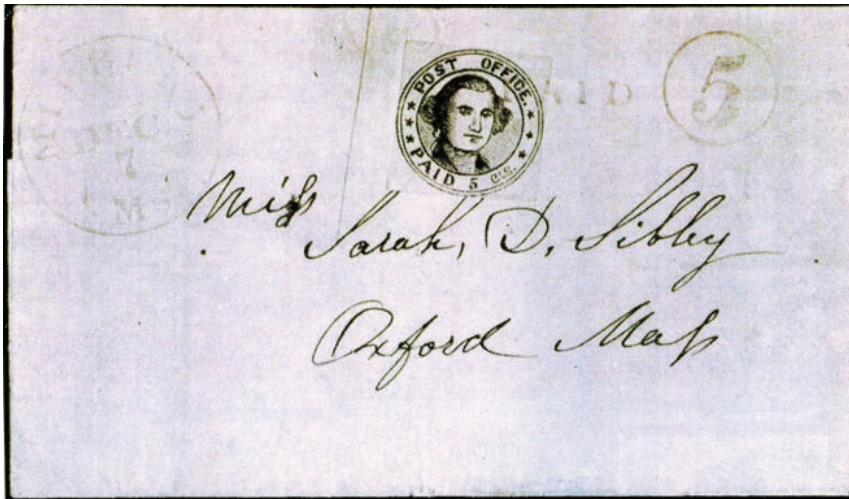 POST OFFICE.
PAID 5 cts.
PAID 5
DEC
7
Miss
Sarah, D. Sibley
Oxford Mass